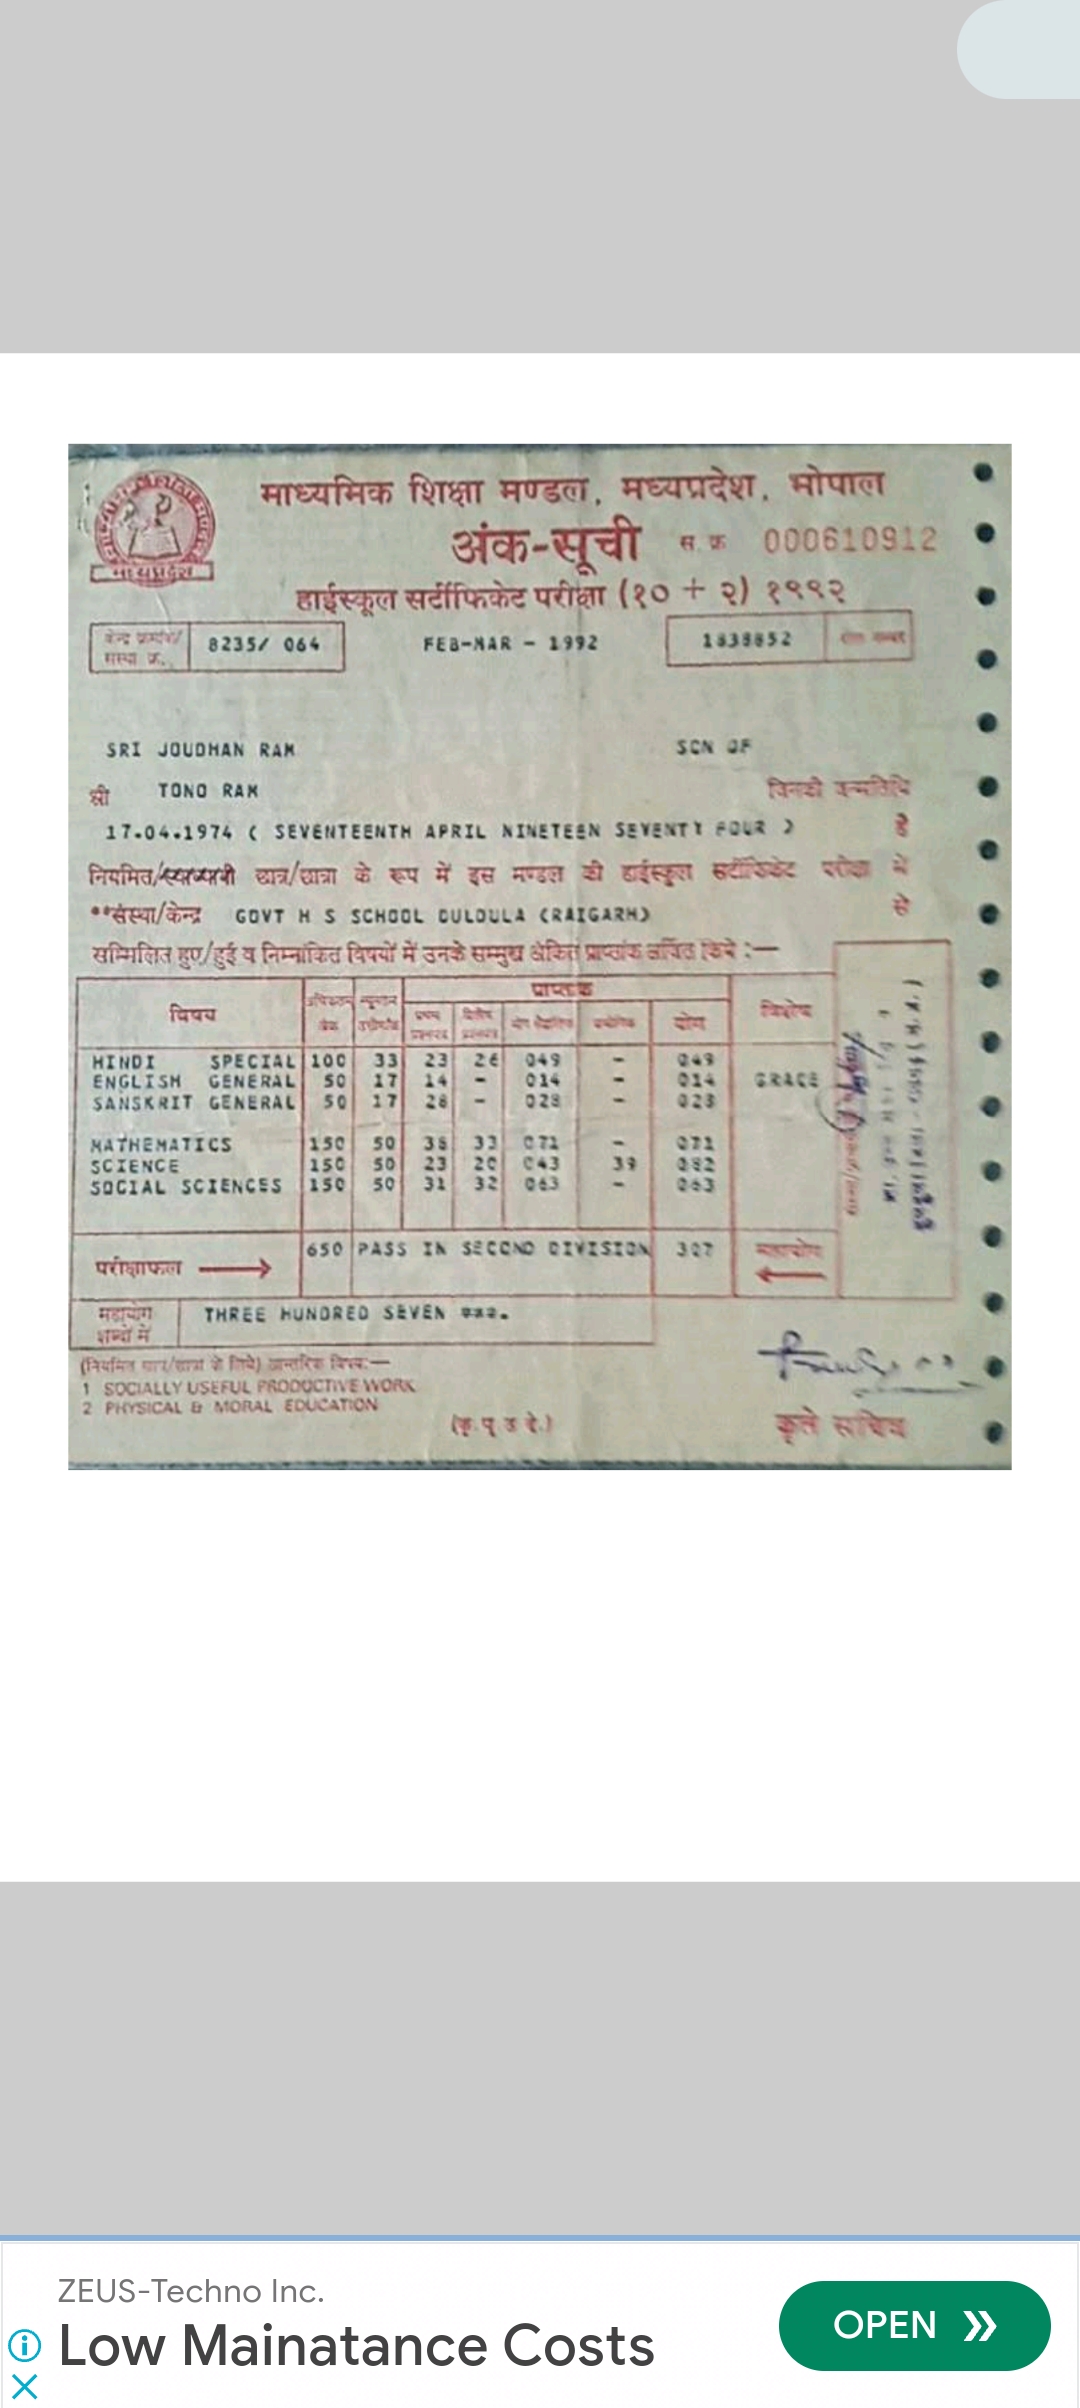 माध्यमिक शिक्षा मण्डल, मध्यप्रदेश, भोपाल
अंक-सूची स. क्र 000610912
हाईस्कूल सर्टीफिकेट परीक्षा (१० + २) १९९२
मध्यप्रदेश
केन्द्र क्रमांक/
संस्था क्र. 8235/ 064 FEB-MAR - 1992
SRI JOUDHAN RAM SON OF
श्री TONO RAM जिनकी जन्मतिथि
17.04.1974 ( SEVENTEENTH APRIL NINETEEN SEVENTY FOUR ) है
नियमित/स्वाध्यायी छात्र/छात्रा के रूप में इस मण्डल की हाईस्कूल सर्टीफिकेट परीक्षा में
**संस्था/केन्द्र GOVT H S SCHOOL DULDULA (RAIGARH) से
सम्मिलित हुए/हुई व निम्नांकित विषयों में उनके सम्मुख अंकित प्राप्तांक अर्जित किये :—
विषय प्राप्तांक विशेष
योग
HINDI SPECIAL 100 33 23 26 049 - 049
ENGLISH GENERAL 50 17 14 - 014 - 014 GRACE
SANSKRIT GENERAL 50 17 28 - 028 - 028
MATHEMATICS 150 50 38 33 071 - 071
SCIENCE 150 50 23 20 043 39 082
SOCIAL SCIENCES 150 50 31 32 063 - 063
परीक्षाफल 650 PASS IN SECOND DIVISION 307 महायोग
महायोग
शब्दों में THREE HUNDRED SEVEN ***.
(नियमित छात्र/छात्रा के लिये) आन्तरिक विषय:—
1 SOCIALLY USEFUL PRODUCTIVE WORK
2 PHYSICAL & MORAL EDUCATION
(कृ. पृ. उ. दे.) कृते सचिव
ZEUS-Techno Inc.
Low Mainatance Costs
OPEN